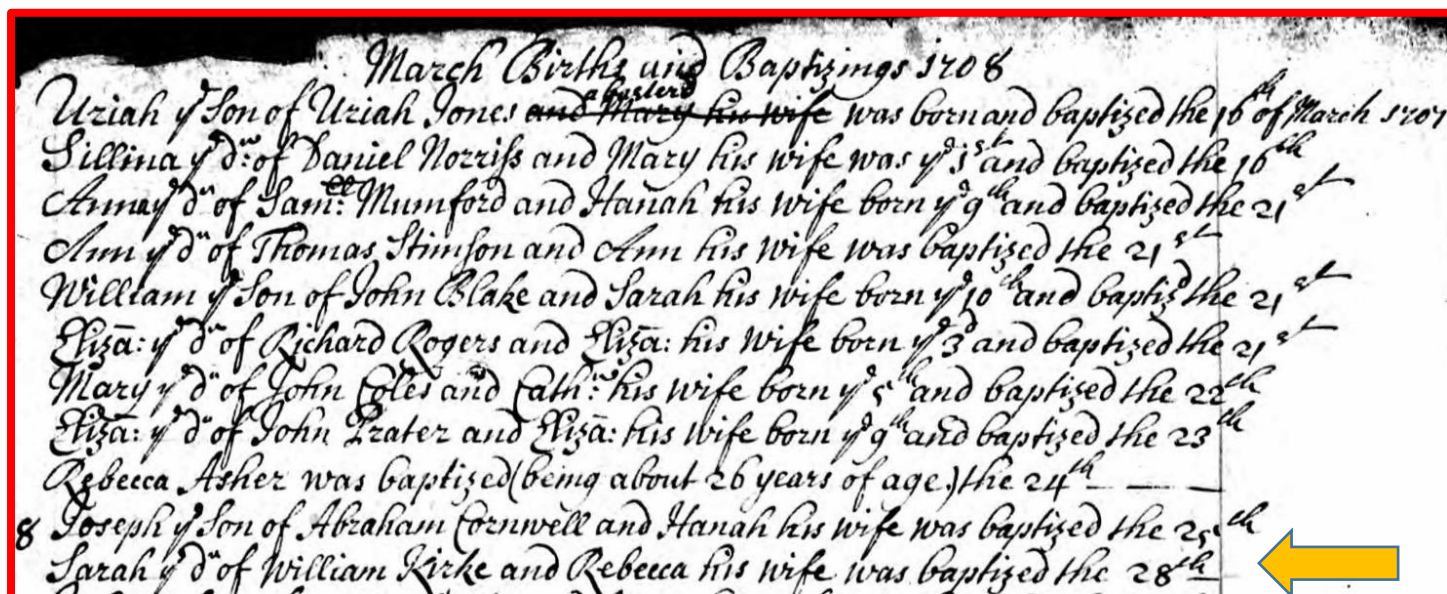 March Births and Baptizings 1708
a basterd
Uriah ye Son of Uriah Jones and Mary his wife was born and baptized the 16th of March 1707
Sillina ye dr: of Daniel Norriss and Mary his wife was ye 1st and baptized the 16th
Anna ye dr of Samll: Mumford and Hanah his wife born ye 9th and baptized the 21st
Ann ye dr of Thomas Stimson and Ann his wife was baptized the 21st
William ye Son of John Blake and Sarah his wife born ye 10th and baptizd the 21st
Eliza: ye dr of Richard Rogers and Eliza: his wife born ye 3d and baptized the 21st
Mary ye dr of John Coles and Cath: his wife born ye 5th and baptized the 22th
Eliza: ye dr of John Prater and Eliza: his wife born ye 9th and baptized the 23th
Rebecca Asher was baptized (being about 26 years of age) the 24th
8 Joseph ye Son of Abraham Cornwell and Hanah his wife was baptized the 25th
Sarah ye dr of William Kirke and Rebecca his wife was baptized the 28th